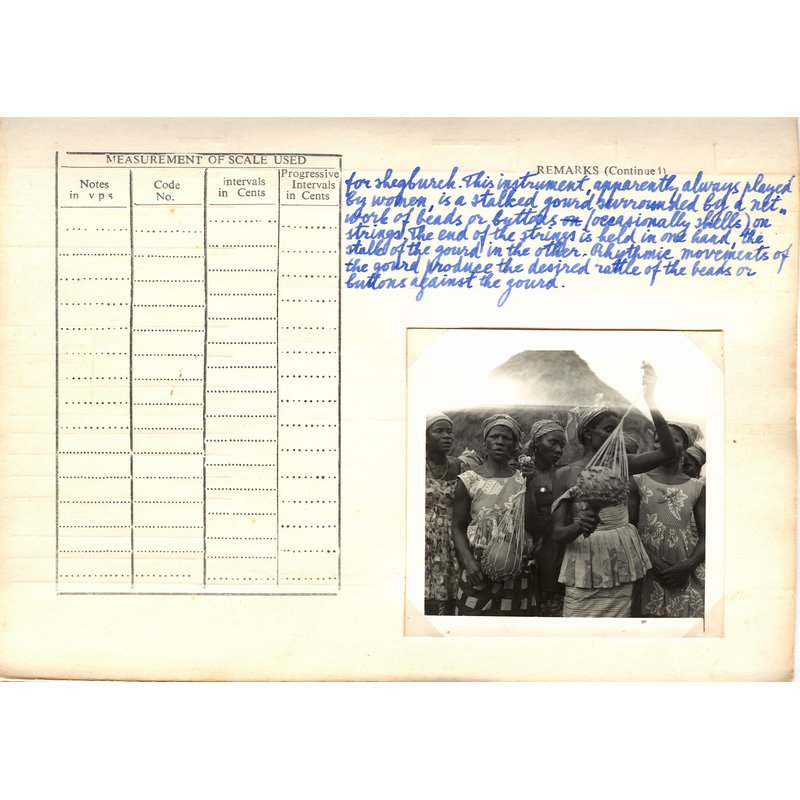 MEASUREMENT OF SCALE USED
Notes in v p s
Code No.
intervals in Cents
Progressive Intervals in Cents
REMARKS (Continued)
for shegbureh. This instrument, apparently always played
by women, is a stalked gourd surrounded by a net-
work of beads or buttons on (occasionally shells) on
strings. The end of the strings is held in one hand, the
stalk of the gourd in the other. Rhythmic movements of
the gourd produce the desired rattle of the beads or
buttons against the gourd.